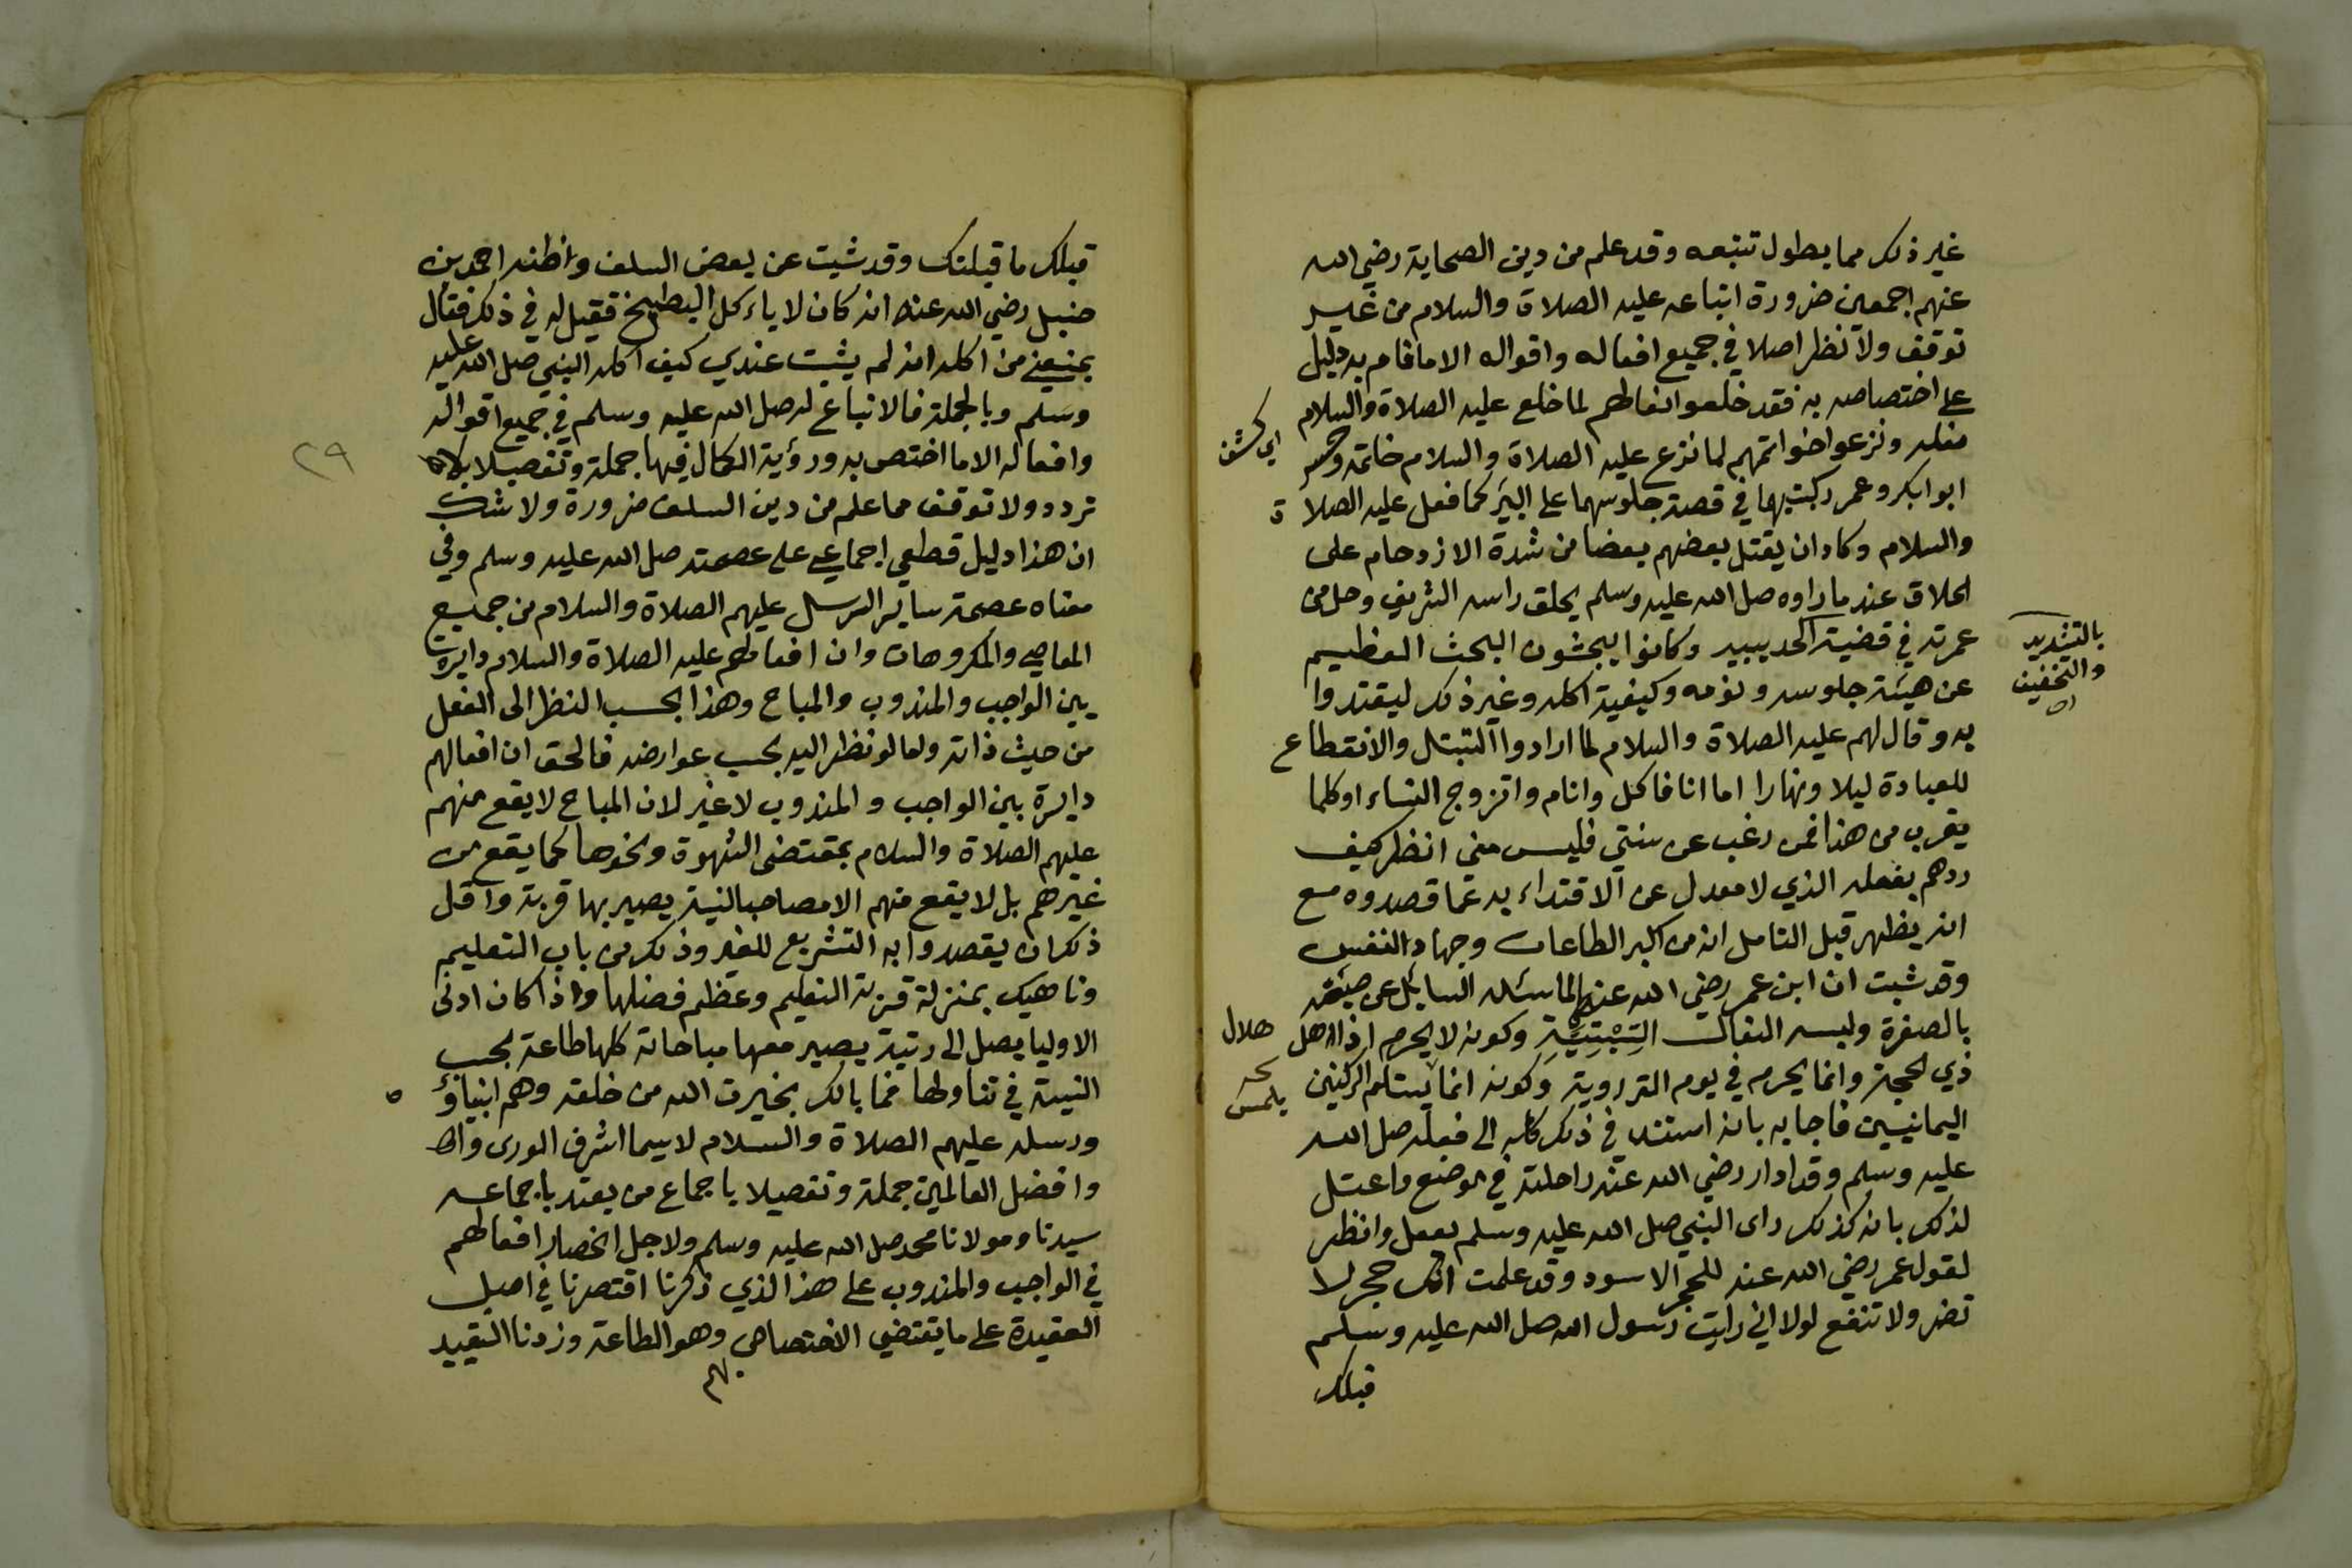 غير ذلك مما يطول تتبعه وقد علم من دين الصحابة رضي الله
عنهم اجمعين ضرورة اتباعه عليه الصلاة والسلام من غير
توقف ولا نظر اصلا في جميع افعاله واقواله الا ما قام به دليل
على اختصاصه به فقد خلعوا نعالهم لما خلع عليه الصلاة والسلام
نعله ونزعوا خواتمهم لما نزع عليه الصلاة والسلام خاتمه وحسر
اي كشف
ابوابكر وعمر ركبتيهما في قصة جلوسهما على البير كما فعل عليه الصلاة
والسلام وكاد ان يقتل بعضهم بعضا من شدة الازدحام على
الحلاق عند ما راوه صل الله عليه وسلم يحلق راسه الشريف وحل من
عمرته في قضية الحديبيه وكانوا يبحثون البحث العظيم
بالتشديد
والتخفيف
اه
عن هيئة جلوسه ونومه وكيفية اكله وغير ذلك ليقتدوا
به وقال لهم عليه الصلاة والسلام لما ارادوا التبتل والانقطاع
للعبادة ليلا ونهارا اما انا فاكل وانام واتزوج النساء او كلما
يقرب من هذا فمن رغب عن سنتي فليس مني انظر كيف
ردهم بفعله الذي لا معدل عن الاقتداء به عما قصدوه مع
انه يظهر قبل التامل انه من اكبر الطاعات وجهاد النفس
وقد ثبت ان ابن عمر رضي الله عنهما لما سئله السايل عن صبغه
بالصفرة ولبسه النعال السِّبْتِيَّةِ وكونه لا يحرم اذا اهل
هلال
ذي الحجة وانما يحرم في يوم التروية وكونه انما يستلم الركنين
يلمس
اليمانيين فاجابه بانه استند في ذلك كله الى فعله صل الله
عليه وسلم وقد ادار رضي الله عنه راحلته في موضع واعتل
لذلك بانه كذلك راى النبي صل الله عليه وسلم يفعل وانظر
لقول عمر رضي الله عنه للحجر الاسود وقد علمت انك حجر لا
تضر ولا تنفع لولا اني رايت رسول الله صل الله عليه وسلم
قبلك
قبلك ما قبلتك وقد ثبت عن بعض السلف واظنه احمد بن
حنبل رضي الله عنه انه كان لا ياءكل البطيخ فقيل له في ذلك فقال
يمنعني من اكله انه لم يثبت عندي كيف اكله النبي صل الله عليه
وسلم وبالجملة فالاتباع له صل الله عليه وسلم في جميع اقواله
وافعاله الا ما اختص به ورؤية الكمال فيها جملة وتفصيلا بلا
٢٩
تردد ولا توقف مما علم من دين السلف ضرورة ولا شك
ان هذا دليل قطعي اجماعي على عصمته صل الله عليه وسلم وفي
معناه عصمة ساير الرسل عليهم الصلاة والسلام من جميع
المعاصي والمكروهات وان افعالهم عليه الصلاة والسلام دايرة
بين الواجب والمندوب والمباح وهذا بحسب النظر الى الفعل
من حيث ذاته واما لو نظر اليه بحسب عوارضه فالحق ان افعالهم
دايرة بين الواجب والمندوب لا غير لان المباح لا يقع منهم
عليهم الصلاة والسلام بمقتضى الشهوة ونحوها كما يقع من
غيرهم بل لا يقع منهم الا مصاحبا لنية يصير بها قربة واقل
ذلك ان يقصدوا به التشريع للغير وذلك من باب التعليم
وناهيك بمنزلة قربة التعليم وعظم فضلها واذا كان ادنى
الاوليا يصل الى رتبة يصير معها مباحاته كلها طاعة بحسب
النية في تناولها فما بالك بخيرت الله من خلقه وهم انبياؤه
ورسله عليهم الصلاة والسلام لا سيما اشرف الورى
وافضل العالمين جملة وتفصيلا باجماع من يعتد باجماعه
سيدنا ومولانا محمد صل الله عليه وسلم ولاجل انحصار افعالهم
في الواجب والمندوب على هذا الذي ذكرنا اقتصرنا في اصل
العقيدة على ما يقتضي الاختصاص وهو الطاعة وزدنا التقييد
بهم